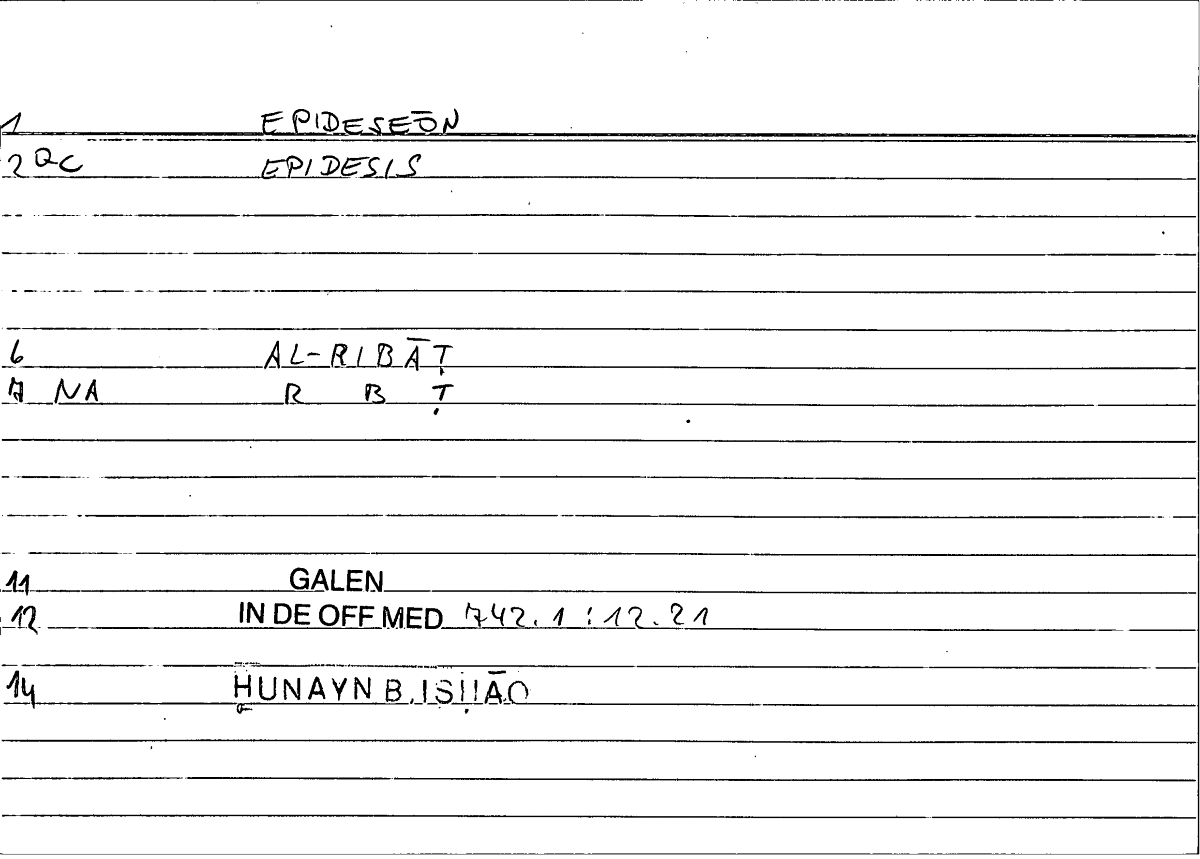 1 EPIDESEŌN
2 QC EPIDESIS
6 AL-RIBĀṬ
7 NA R B Ṭ
11 GALEN
12 IN DE OFF MED 742.1 : 12.21
14 ḤUNAYN B. ISḤĀQ